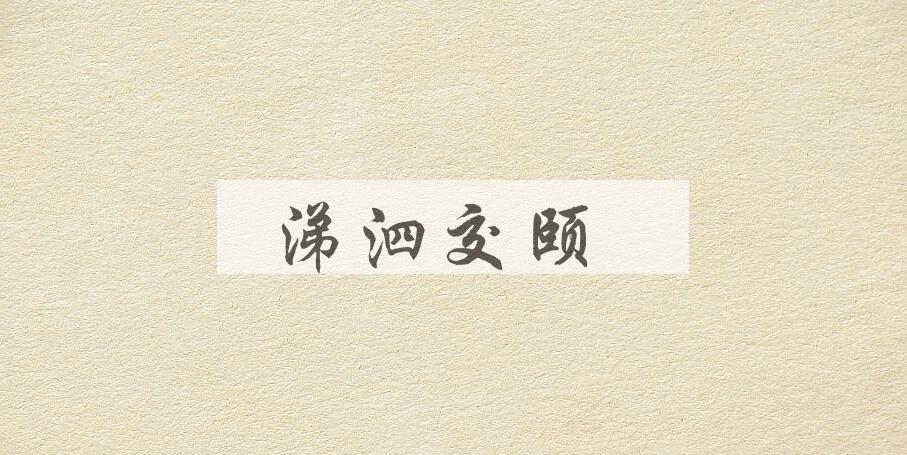 涕泗交颐